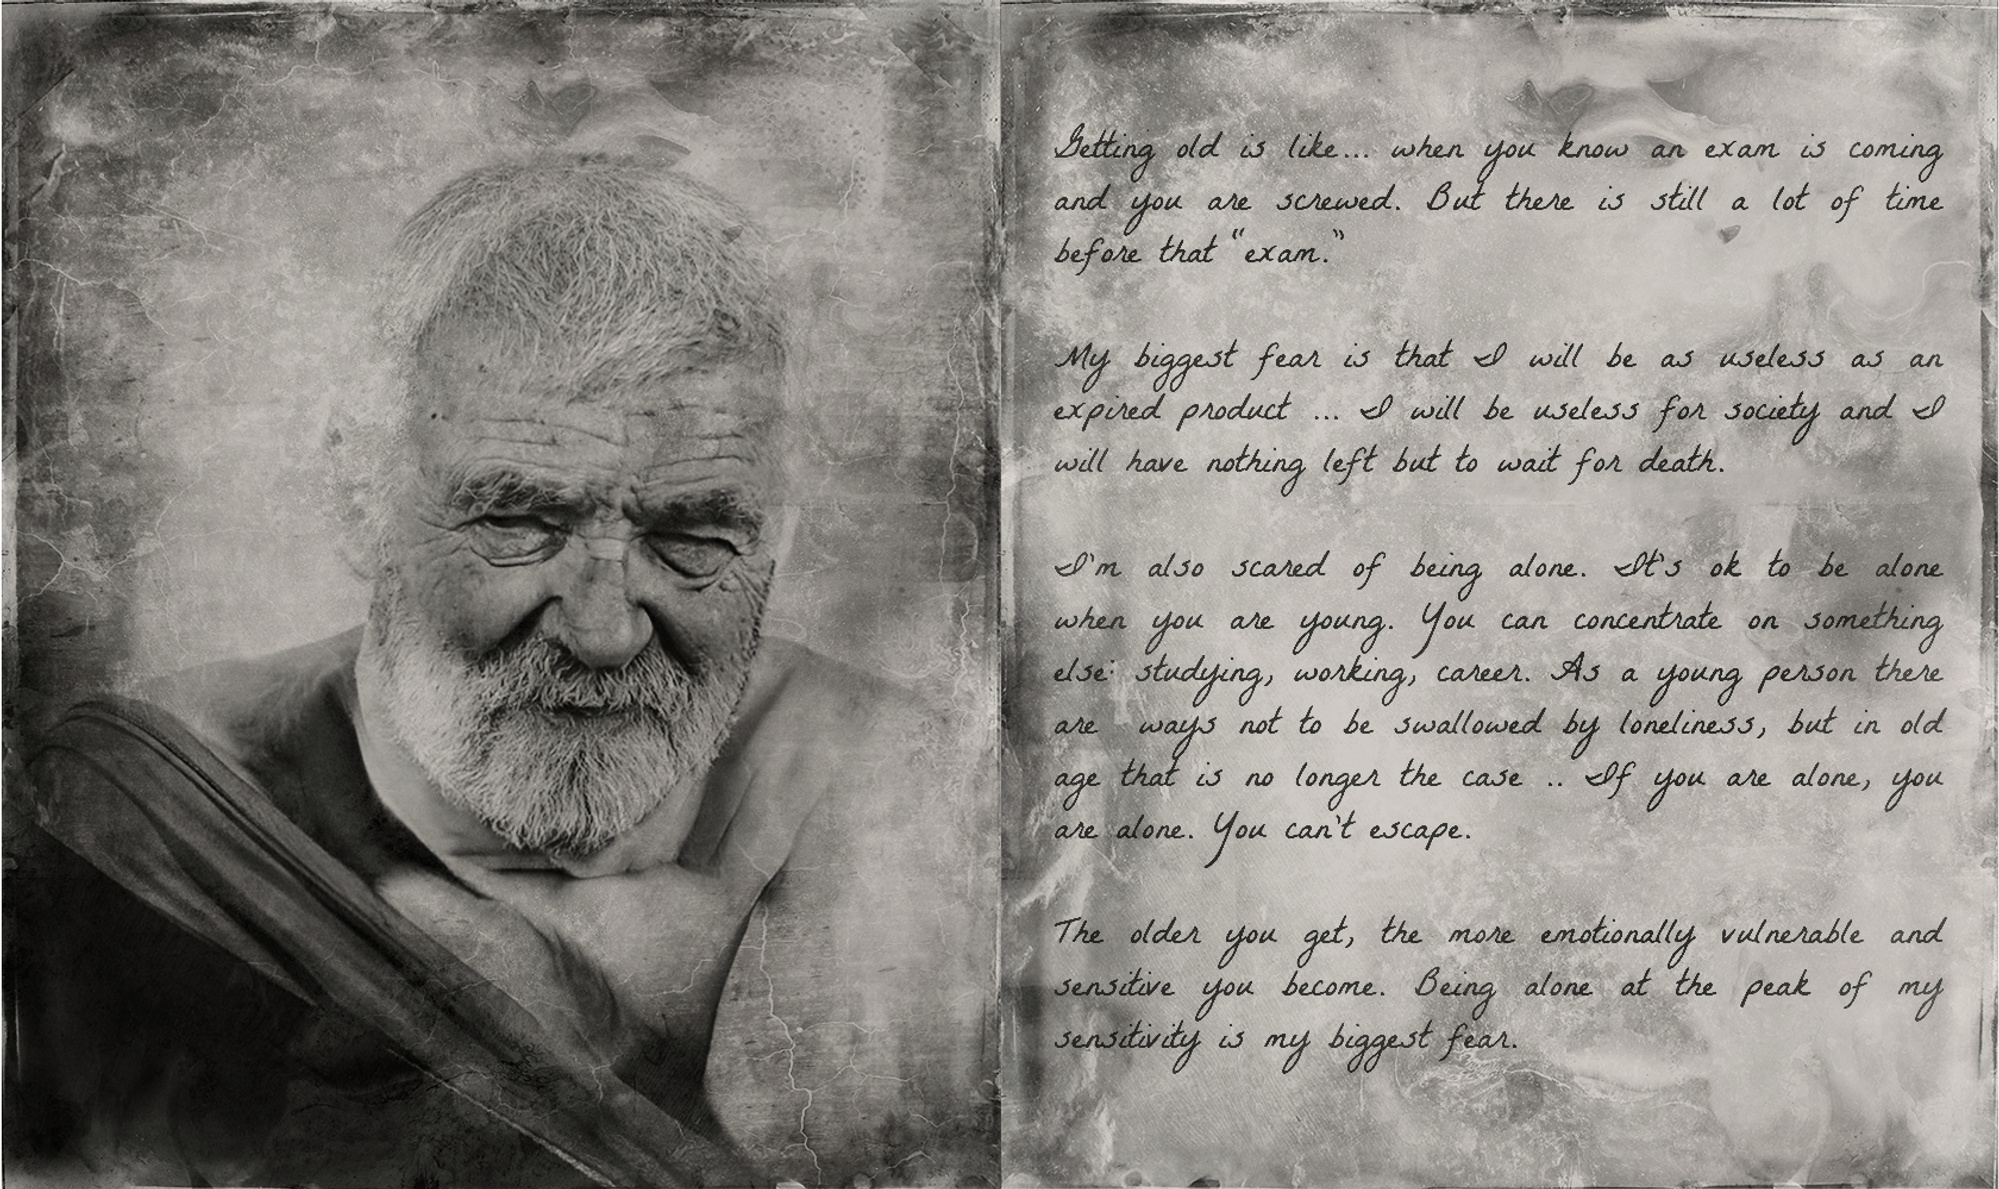 Getting old is like... when you know an exam is coming
and you are screwed. But there is still a lot of time
before that "exam."
My biggest fear is that I will be as useless as an
expired product ... I will be useless for society and I
will have nothing left but to wait for death.
I'm also scared of being alone. It's ok to be alone
when you are young. You can concentrate on something
else: studying, working, career. As a young person there
are ways not to be swallowed by loneliness, but in old
age that is no longer the case .. If you are alone, you
are alone. You can't escape.
The older you get, the more emotionally vulnerable and
sensitive you become. Being alone at the peak of my
sensitivity is my biggest fear.